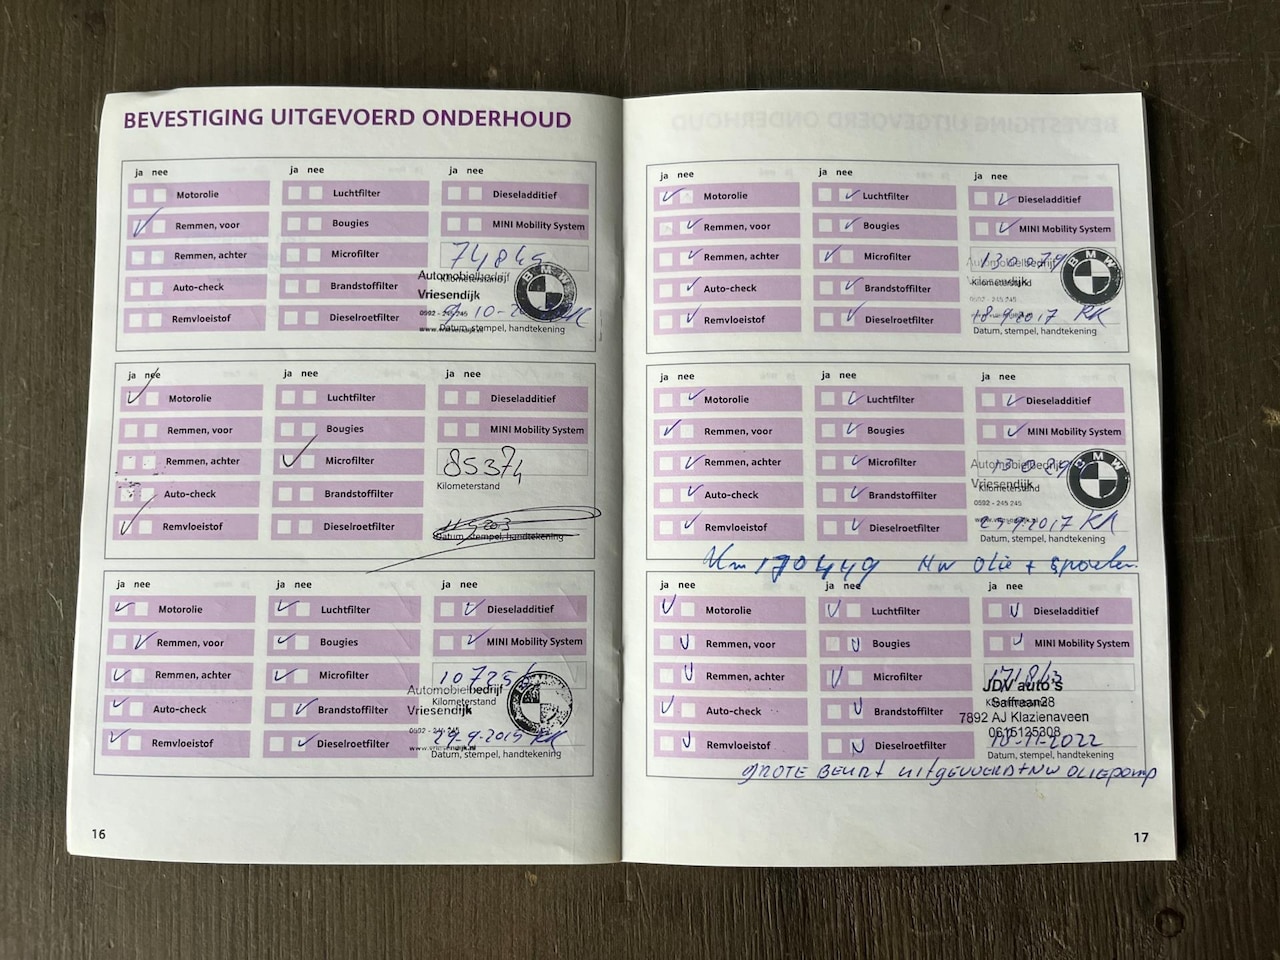 BEVESTIGING UITGEVOERD ONDERHOUD
ja nee
ja nee
ja nee
Motorolie
Luchtfilter
Dieseladditief
Remmen, voor
Bougies
MINI Mobility System
Remmen, achter
Microfilter
Auto-check
Brandstoffilter
Kilometerstand
Remvloeistof
Dieselroetfilter
Datum, stempel, handtekening
Automobielbedrijf
Vriesendijk
0592 - 245 245
www.vriesendijk.nl
BMW
ja nee
ja nee
ja nee
Motorolie
Luchtfilter
Dieseladditief
Remmen, voor
Bougies
MINI Mobility System
Remmen, achter
Microfilter
85374
Auto-check
Brandstoffilter
Kilometerstand
Remvloeistof
Dieselroetfilter
Datum, stempel, handtekening
ja nee
ja nee
ja nee
Motorolie
Luchtfilter
Dieseladditief
Remmen, voor
Bougies
MINI Mobility System
Remmen, achter
Microfilter
Auto-check
Brandstoffilter
Kilometerstand
Remvloeistof
Dieselroetfilter
Datum, stempel, handtekening
Automobielbedrijf
Vriesendijk
0592 - 245 245
www.vriesendijk.nl
16
ja nee
ja nee
ja nee
Motorolie
Luchtfilter
Dieseladditief
Remmen, voor
Bougies
MINI Mobility System
Remmen, achter
Microfilter
130079
Auto-check
Brandstoffilter
Kilometerstand
Remvloeistof
Dieselroetfilter
18-9-2017
Datum, stempel, handtekening
Automobielbedrijf
Vriesendijk
0592 - 245 245
BMW
ja nee
ja nee
ja nee
Motorolie
Luchtfilter
Dieseladditief
Remmen, voor
Bougies
MINI Mobility System
Remmen, achter
Microfilter
Auto-check
Brandstoffilter
Kilometerstand
Remvloeistof
Dieselroetfilter
Datum, stempel, handtekening
Automobielbedrijf
Vriesendijk
0592 - 245 245
www.vriesendijk.nl
BMW
Km 170449 NW Olie + Spoelen
ja nee
ja nee
ja nee
Motorolie
Luchtfilter
Dieseladditief
Remmen, voor
Bougies
MINI Mobility System
Remmen, achter
Microfilter
Auto-check
Brandstoffilter
Kilometerstand
Remvloeistof
Dieselroetfilter
Datum, stempel, handtekening
JDV auto's
Saffraan 28
7892 AJ Klazienaveen
0615125308
10-11-2022
GROTE BEURT uitgevoerd + NW OLIEPOMP
17